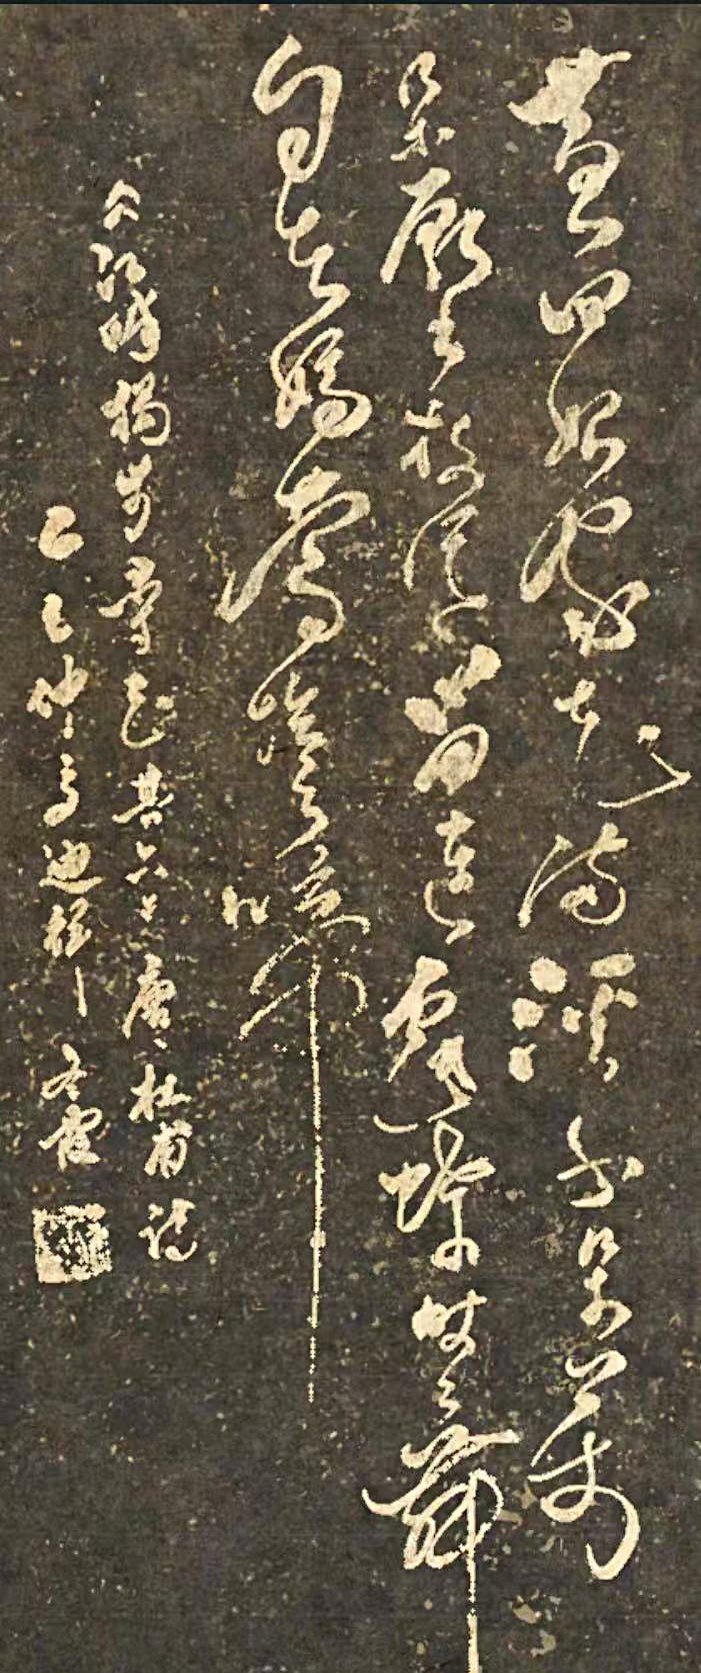 黄四娘家花满蹊千朵万
朵压枝低留连戏蝶时时舞
自在娇莺恰恰啼
江畔独步寻花其六唐杜甫诗
乙巳仲夏